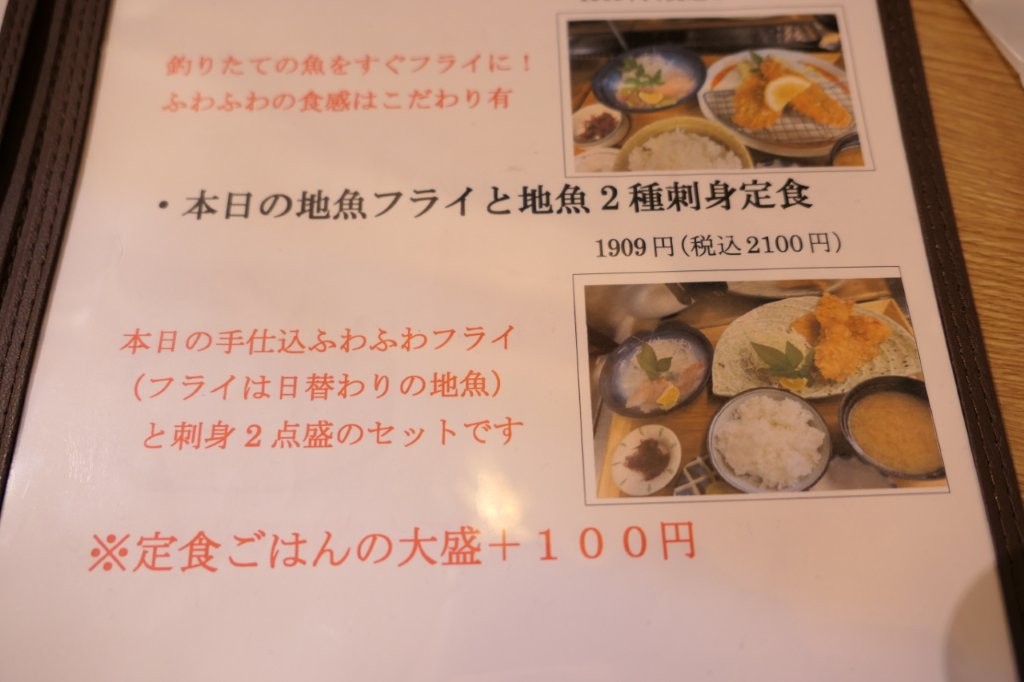 釣りたての魚をすぐフライに！
ふわふわの食感はこだわり有
・本日の地魚フライと地魚２種刺身定食
1909円(税込2100円)
本日の手仕込ふわふわフライ
（フライは日替わりの地魚）
と刺身２点盛のセットです
※定食ごはんの大盛＋１００円